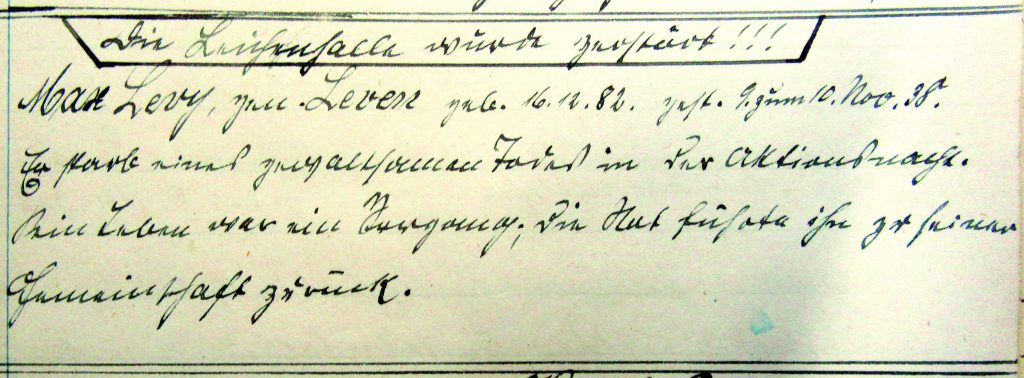 Die Leichenhalle wurde zerstört!!!
Max Levy, gen. Leven geb. 16.12.82. gest. 9. zum 10. Nov. 38.
Er starb eines gewaltsamen Todes in der Aktionsnacht.
Sein Leben war ein; die Not führte ihn zu seiner
Gemeinschaft zurück.